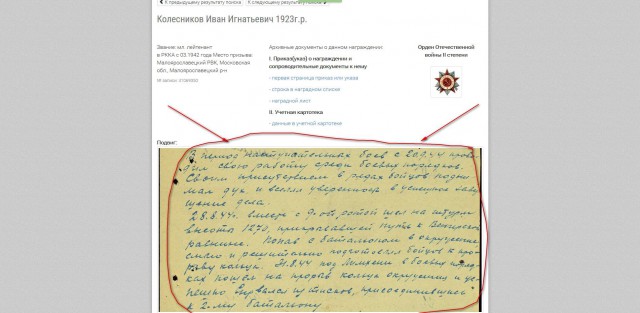 К предыдущему результату поиска
К следующему результату поиска
Колесников Иван Игнатьевич 1923г.р.
Звание: мл. лейтенант
в РККА с 03.1942 года Место призыва:
Малоярославецкий РВК, Московская
обл., Малоярославецкий р-н
№ записи:
Архивные документы о данном награждении
I. Приказ(указ) о награждении и
сопроводительные документы к нему
- первая страница приказ или указа
- строка в наградном списке
- наградной лист
II. Учетная картотека
- данные в учетной картотеке
Орден Отечественной
войны II степени
Подвиг:
В период наступательных боев с
свою работу среди боевых порядков.
Своим присутствием в рядах бойцов подни
мал дух и вселял уверенность в успешное завер
шение дела.
28.8.44г. вместе с 9-ой ротой шел на штурм
высоты 1270, преграждавшей путь к Венгерской
равнине. Попав с батальоном в окружение
смело и решительно подготовлял бойцов к про
рыву кольца. 31.8.44 под в боевых поряд
ках пошел на прорыв кольца окружения и ус
пешно вырвался из тисков, присоединившись
к 2-му баталиону